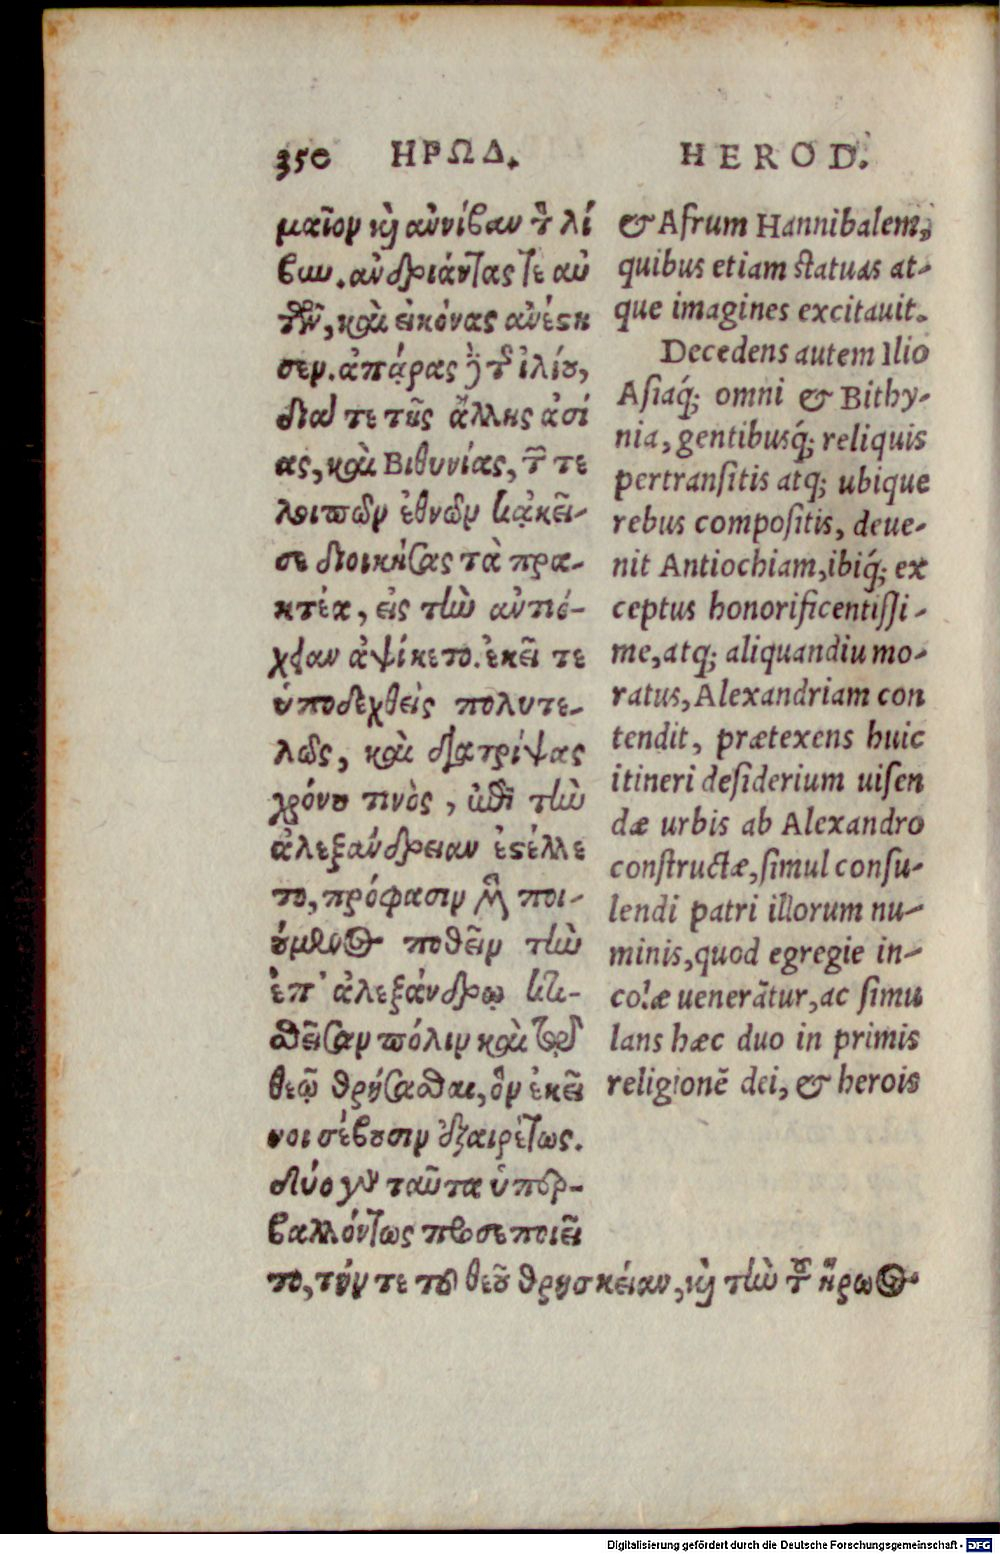 350 ΗΡΩΔ.
μαῖον καὶ ἀννίβαν τὸν λί
βυν. ἀνδριάντας τε αὐ
τῶν, καὶ εἰκόνας ἀνέστη
σεν. ἀπάρας δὲ τοῦ ἰλίου,
διά τε τῆς ἄλλης ἀσί
ας, καὶ Βιθυνίας, τῶν τε
λοιπῶν ἐθνῶν κἀκεῖ-
σε διοικήσας τὰ πρα-
κτέα, εἰς τὴν ἀντιό-
χειαν ἀφίκετο. ἐκεῖ τε
ὑποδεχθεὶς πολυτε-
λῶς, καὶ διατρίψας
χρόνου τινὸς, ἐπὶ τὴν
ἀλεξάνδρειαν ἐστέλλε
το, πρόφασιν μὲν ποι-
ούμενος ποθεῖν τὴν
ἐπ' ἀλεξάνδρῳ κτι-
σθεῖσαν πόλιν καὶ τῷ
θεῷ θρήσασθαι, ὃν ἐκεῖ
νοι σέβουσιν ἐξαιρέτως.
δύο γοῦν ταῦτα ὑπερ-
βαλλόντως προσεποιεῖ
το, τήν τε τοῦ θεοῦ θρησκείαν, καὶ τὴν τοῦ ἥρωος
HEROD.
& Afrum Hannibalem,
quibus etiam statuas at-
que imagines excitauit.
Decedens autem Ilio
Asiaq́; omni & Bithy-
nia, gentibusq́; reliquis
pertransitis atq; ubique
rebus compositis, deue-
nit Antiochiam, ibiq́; ex
ceptus honorificentissi-
me, atq; aliquandiu mo-
ratus, Alexandriam con
tendit, prætexens huic
itineri desiderium uisen
dæ urbis ab Alexandro
constructæ, simul consu-
lendi patri illorum nu-
minis, quod egregie in-
colæ uenerãtur, ac simu
lans hæc duo in primis
religionẽ dei, & herois
Digitalisierung gefördert durch die Deutsche Forschungsgemeinschaft - DFG